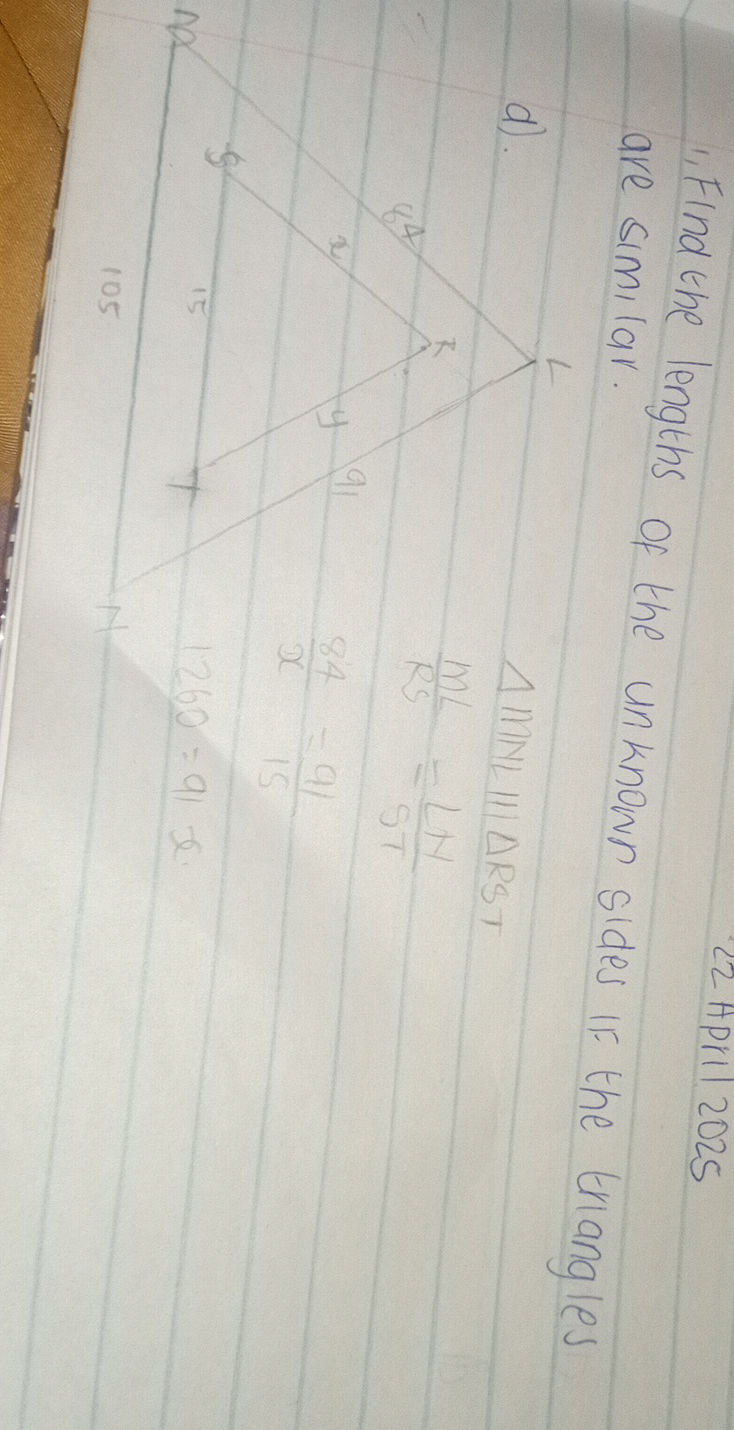 22 April 2025
1, Find the lengths of the unknown sides if the triangles
are similar.
d).
L
R
84
x
y
91
M
S
15
T
105
N
ΔMNL ||| ΔRST
ML/RS = LN/ST
84/x = 91/15
1260 = 91x